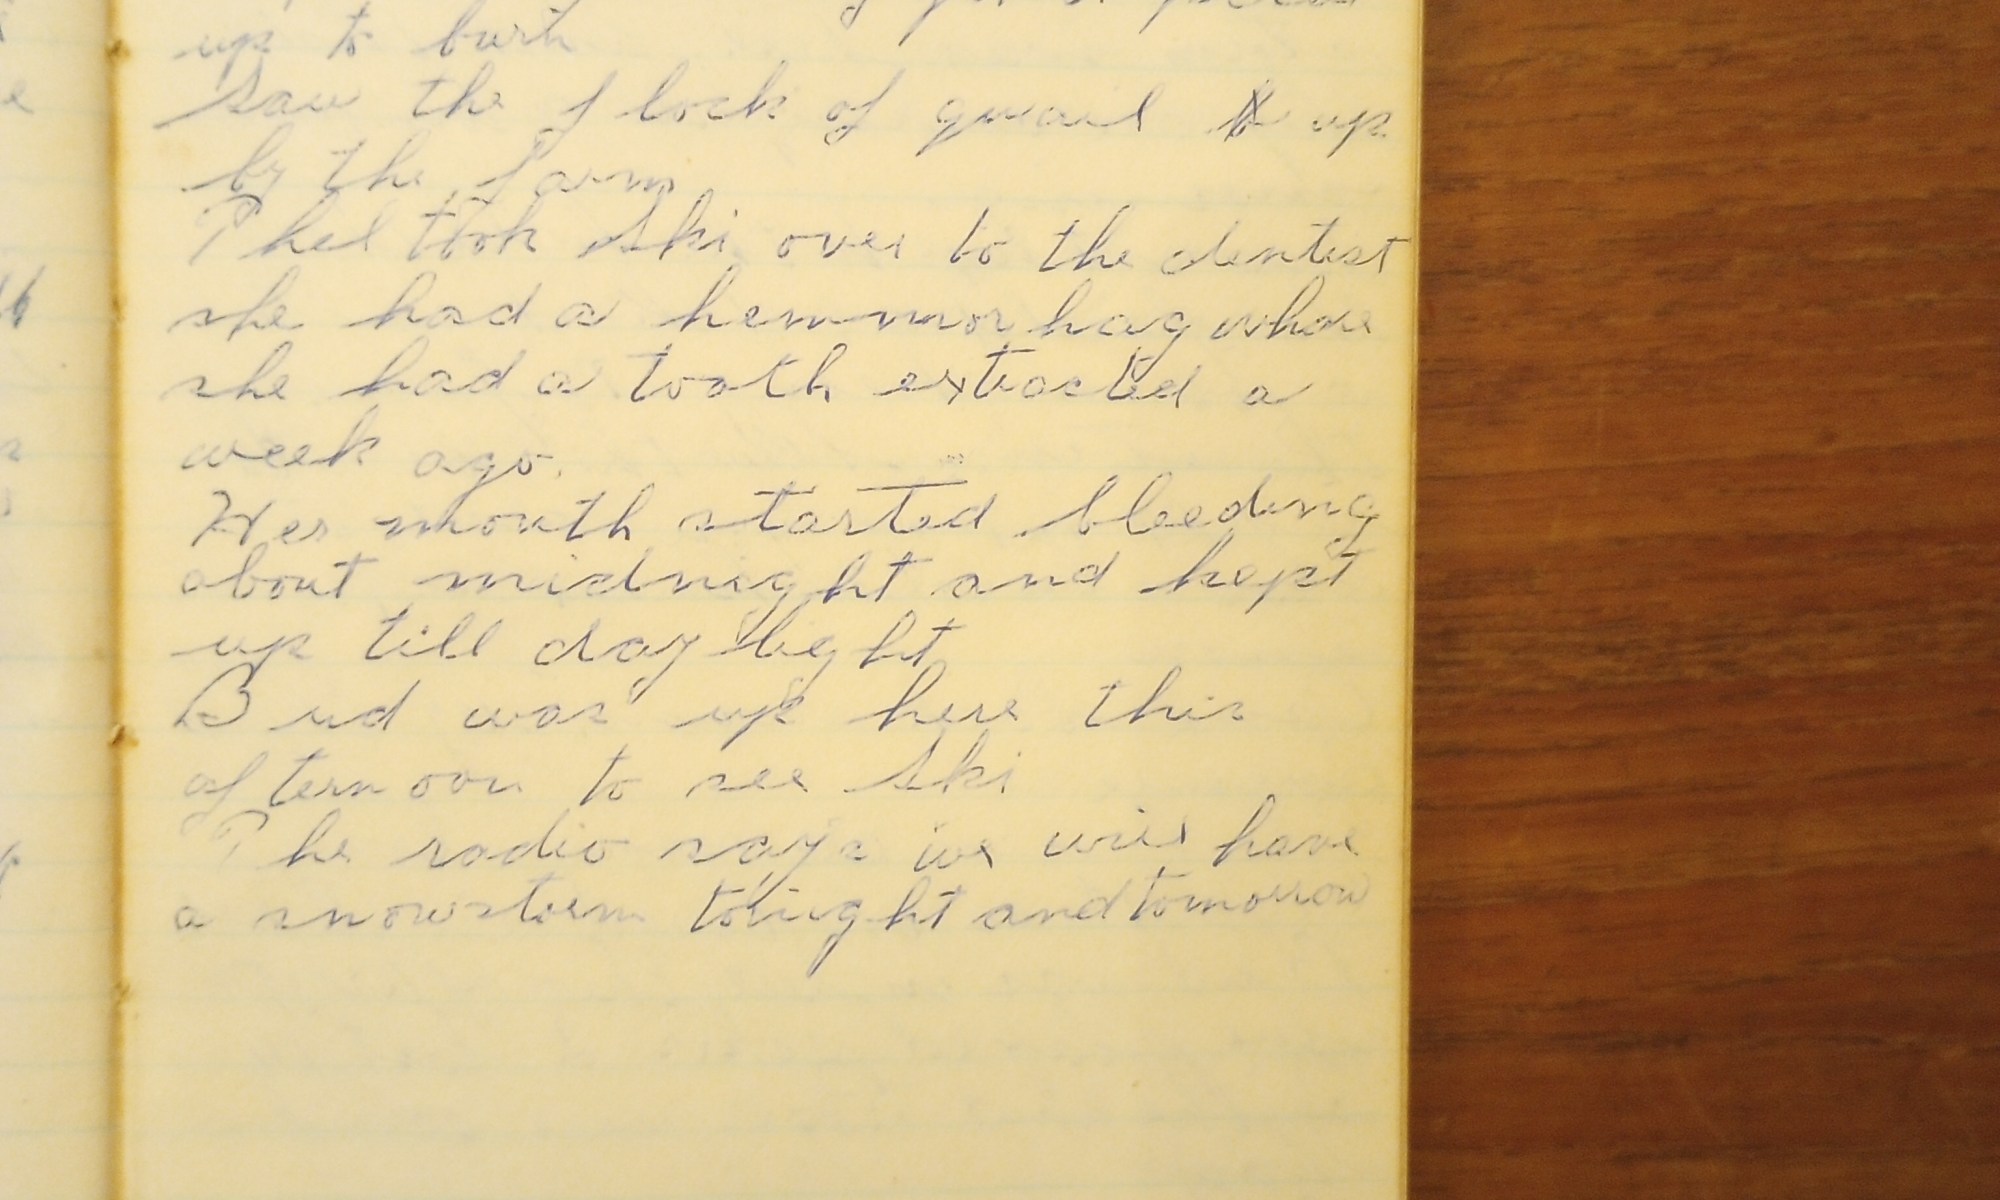 up to burn
Saw the flock of quail up
by the farm
Phel took Ski over to the dentist
she had a hemmorhag whare
she had a tooth extracted a
week ago.
Her mouth started bleeding
about midnight and kept
up till day light
Bud was up here this
afternoon to see Ski
The radio says we will have
a snowstorm tonight and tomorrow